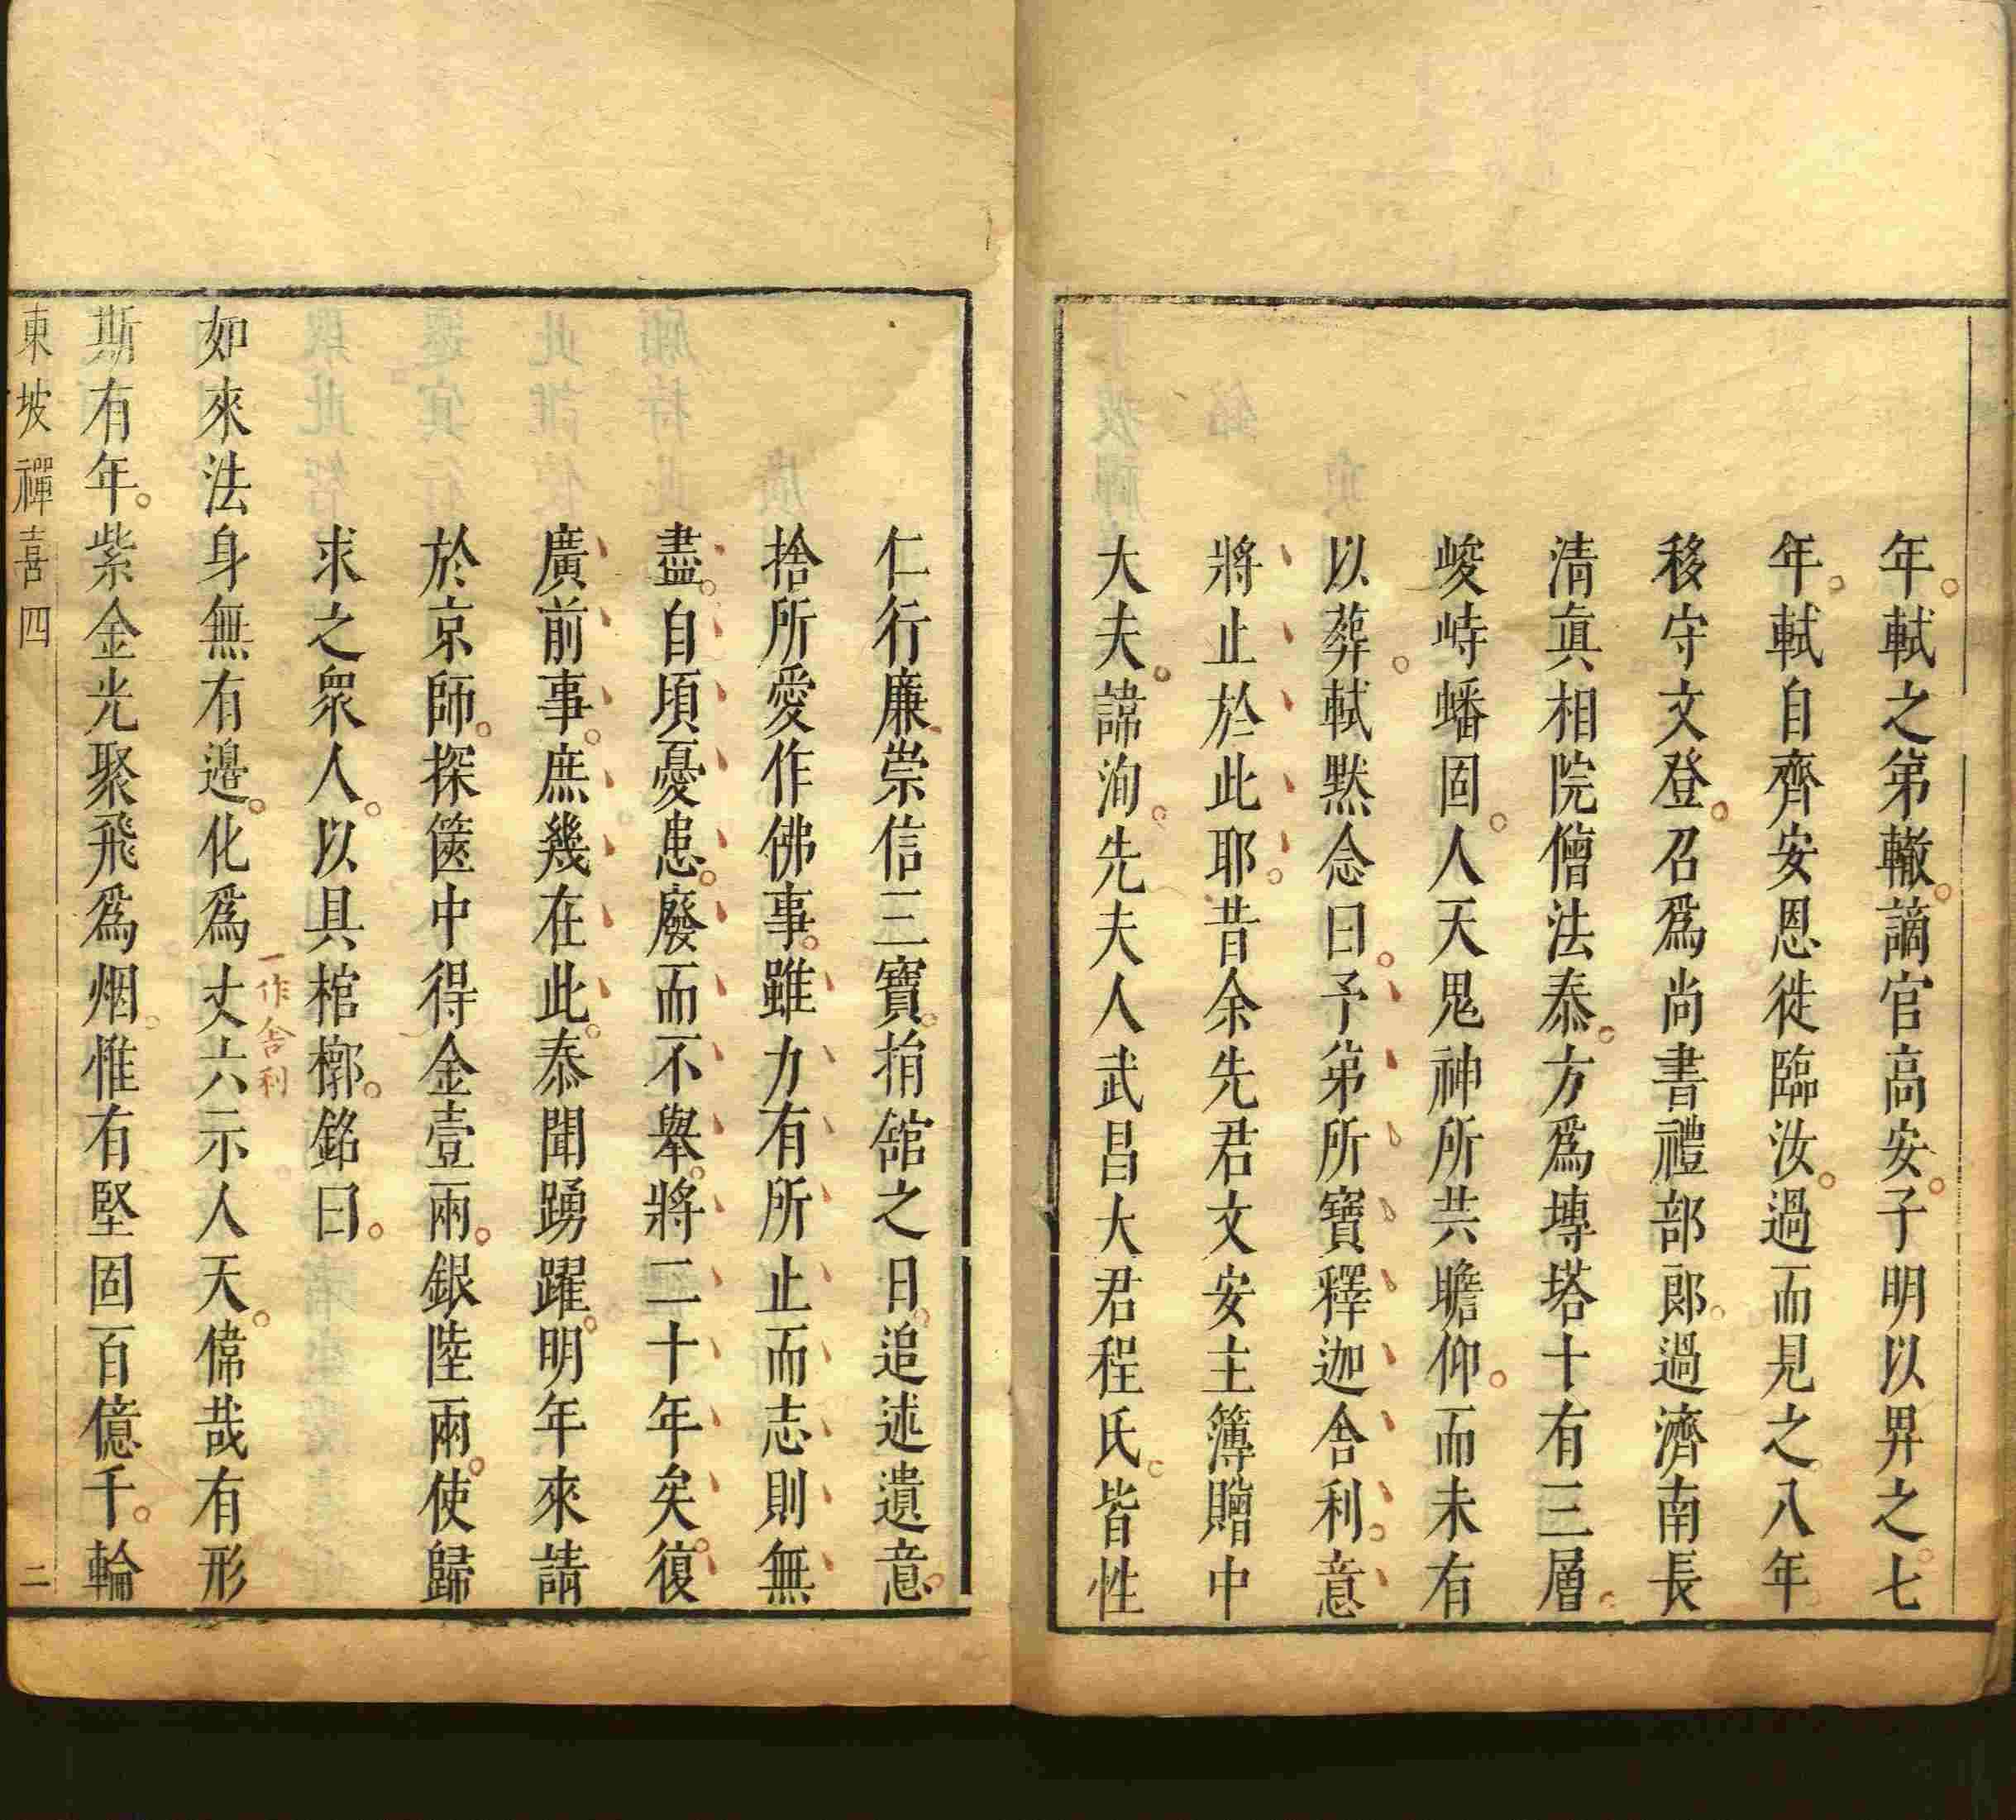 年。軾之弟轍。謫官高安。子明以畀之。七
年。軾自齊安恩徙臨汝。過而見之。八年。
移守文登。召爲尚書禮部郎。過濟南長
清真相院。僧法泰。方爲塼塔十有三層。
峻峙蟠固。人天鬼神所共瞻仰。而未有
以葬。軾默念曰。予弟所寶釋迦舍利。意
將止於此耶。昔余先君文安主簿贈中
大夫。諱洵。先夫人武昌大君程氏。皆性
仁行廉。崇信三寶。捐館之日。追述遺意。
捨所愛作佛事。雖力有所止而志則無
盡。自頃憂患。廢而不舉。將二十年矣。復
廣前事。庶幾在此。泰聞踴躍。明年來請
於京師。探篋中得金壹兩。銀陸兩。使歸
求之衆人。以具棺槨。銘曰。
一作舍利
如來法身無有邊。化爲丈六示人天。偉哉有形
斯有年。紫金光聚飛爲烟。惟有堅固百億千。輪
東坡禪喜四 二